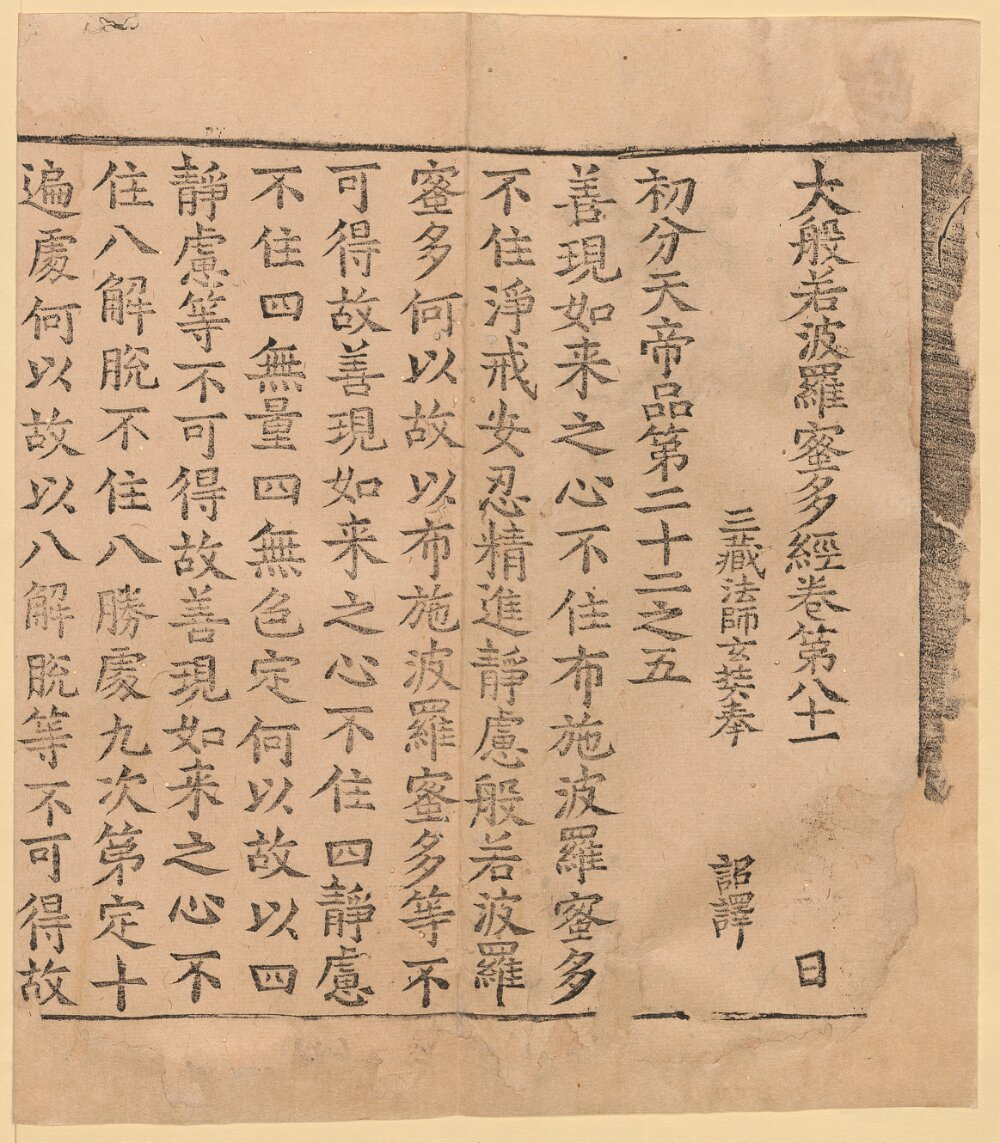 大般若波羅蜜多經卷第八十一 日
三藏法師玄奘奉 詔譯
初分天帝品第二十二之五
善現如来之心不住布施波羅蜜多
不住淨戒安忍精進靜慮般若波羅
蜜多何以故以布施波羅蜜多等不
可得故善現如来之心不住四靜慮
不住四無量四無色定何以故以四
靜慮等不可得故善現如来之心不
住八解脫不住八勝處九次第定十
遍處何以故以八解脫等不可得故